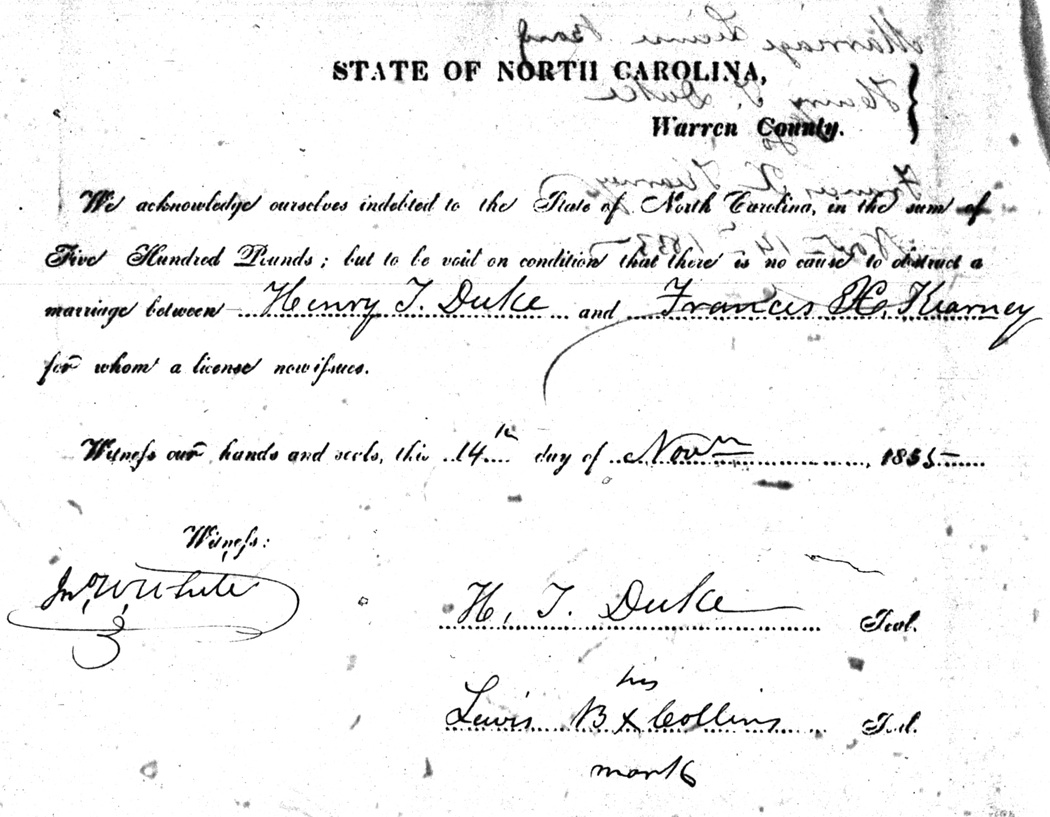 STATE OF NORTH CAROLINA,
Warren County.
We acknowledge ourselves indebted to the State of North Carolina, in the sum of
Five Hundred Pounds; but to be void on condition that there is no cause to obstruct a
marriage between Henry T. Duke and Frances H. Kearney
for whom a license now issues.
Witness our hands and seals, this 14th day of Novr 1855
Witness:
Jno. W. White
H. T. Duke Seal.
his
Lewis B x Collins Seal.
mark
Marriage License Bond
Henry T. Duke
to
Frances K Kearney
Nov 14th 1855